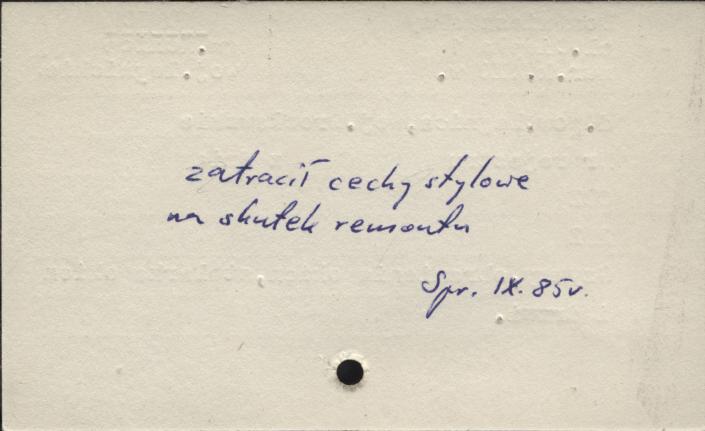 zatracił cechy stylowe
na skutek remontu
Spr. IX. 85r.